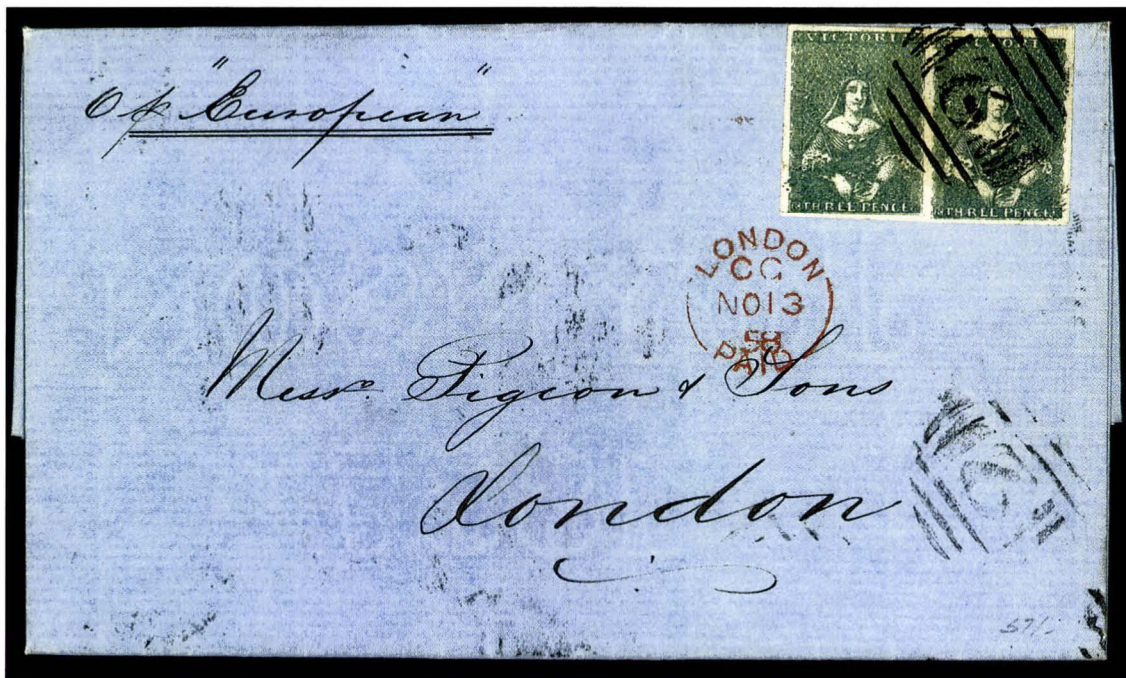 "European"
VICTORIA
THREE PENCE
THREE PENCE
LONDON
CG
NO 13
58
PAID
Messrs Pigeon & Sons
London
57/-